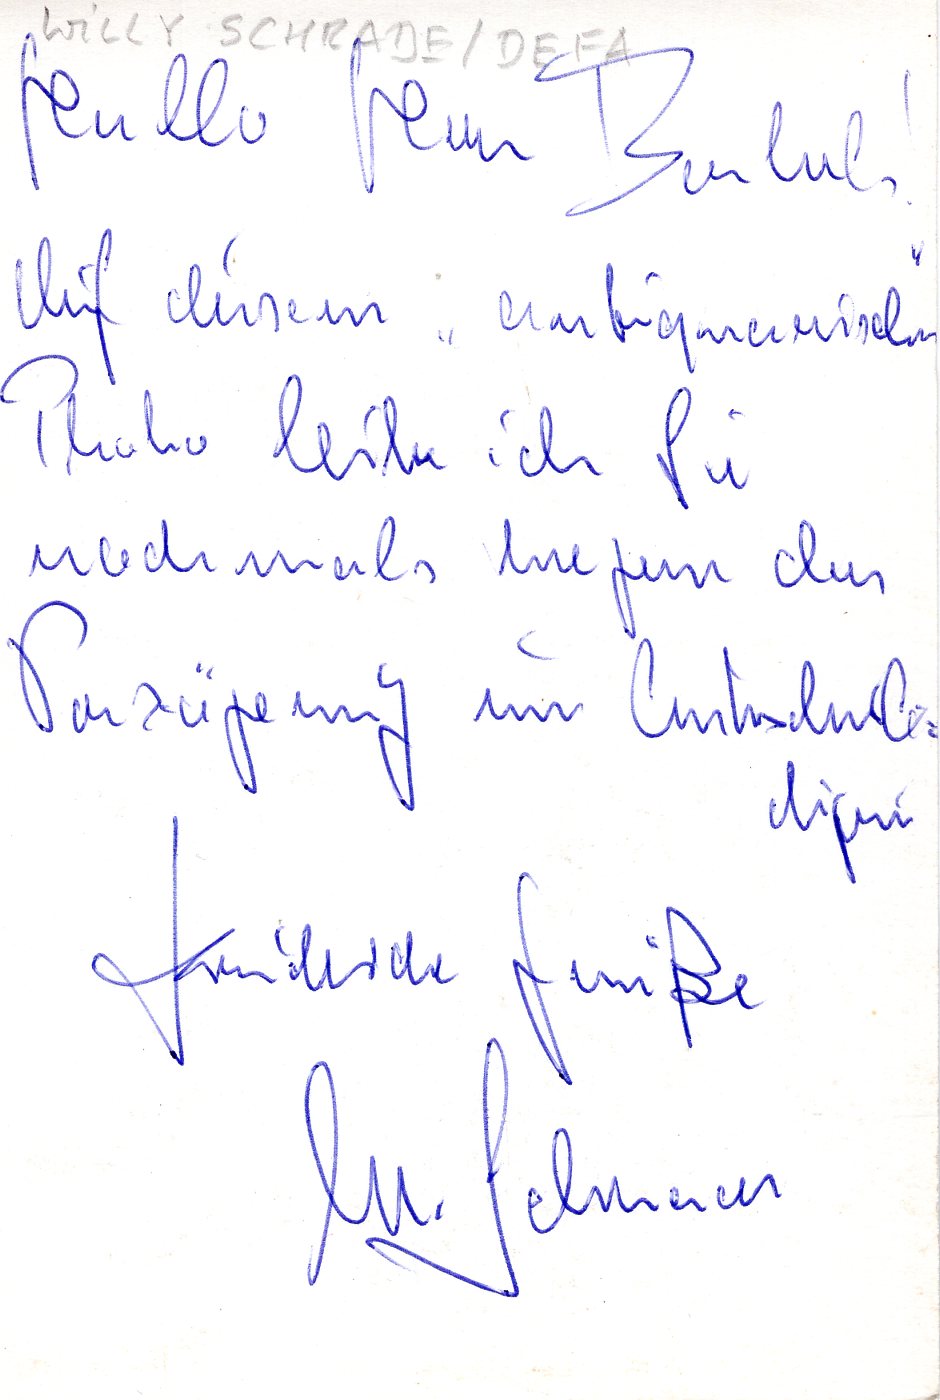 WILLY SCHRADE/DEFA
Hallo Herr
Auf diesem „antiquarischen"
Photo bitte ich Sie
nochmals wegen der
Verzögerung um Entschul=
digung
Freundliche Grüße